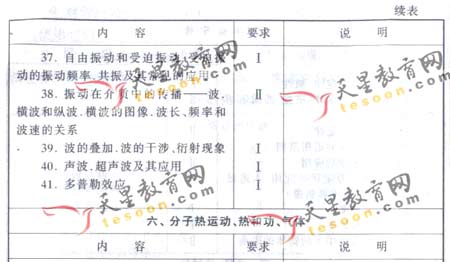 续表
内 容 要求 说 明
37. 自由振动和受迫振动,受迫振 Ⅰ
动的振动频率.共振及其常见的应用
38. 振动在介质中的传播——波. Ⅱ
横波和纵波.横波的图像.波长、频率和
波速的关系
39. 波的叠加.波的干涉、衍射现象 Ⅰ
40. 声波.超声波及其应用 Ⅰ
41. 多普勒效应 Ⅰ
六、分子热运动、热和功、气体
内 容 要求 说 明
天星教育网
tesoon.com
天星教育网
tesoon.com
天星教育网
tesoon.com
天星教育网
tesoon.com